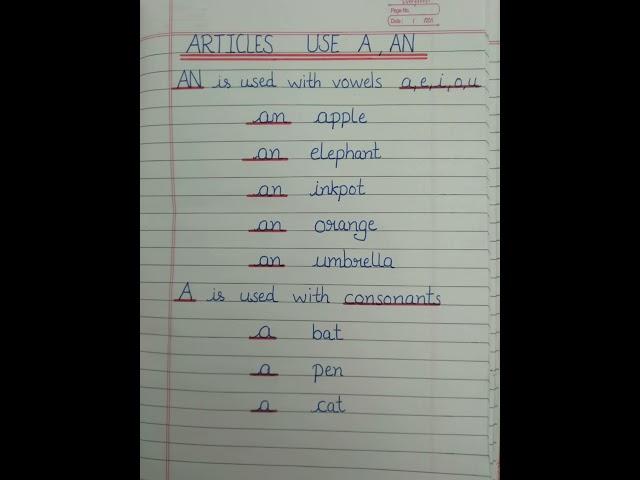 Page No.
Date: / /201
ARTICLES USE A, AN
AN is used with vowels a,e,i,o,u
an apple
an elephant
an inkpot
an orange
an umbrella
A is used with consonants
a bat
a pen
a cat